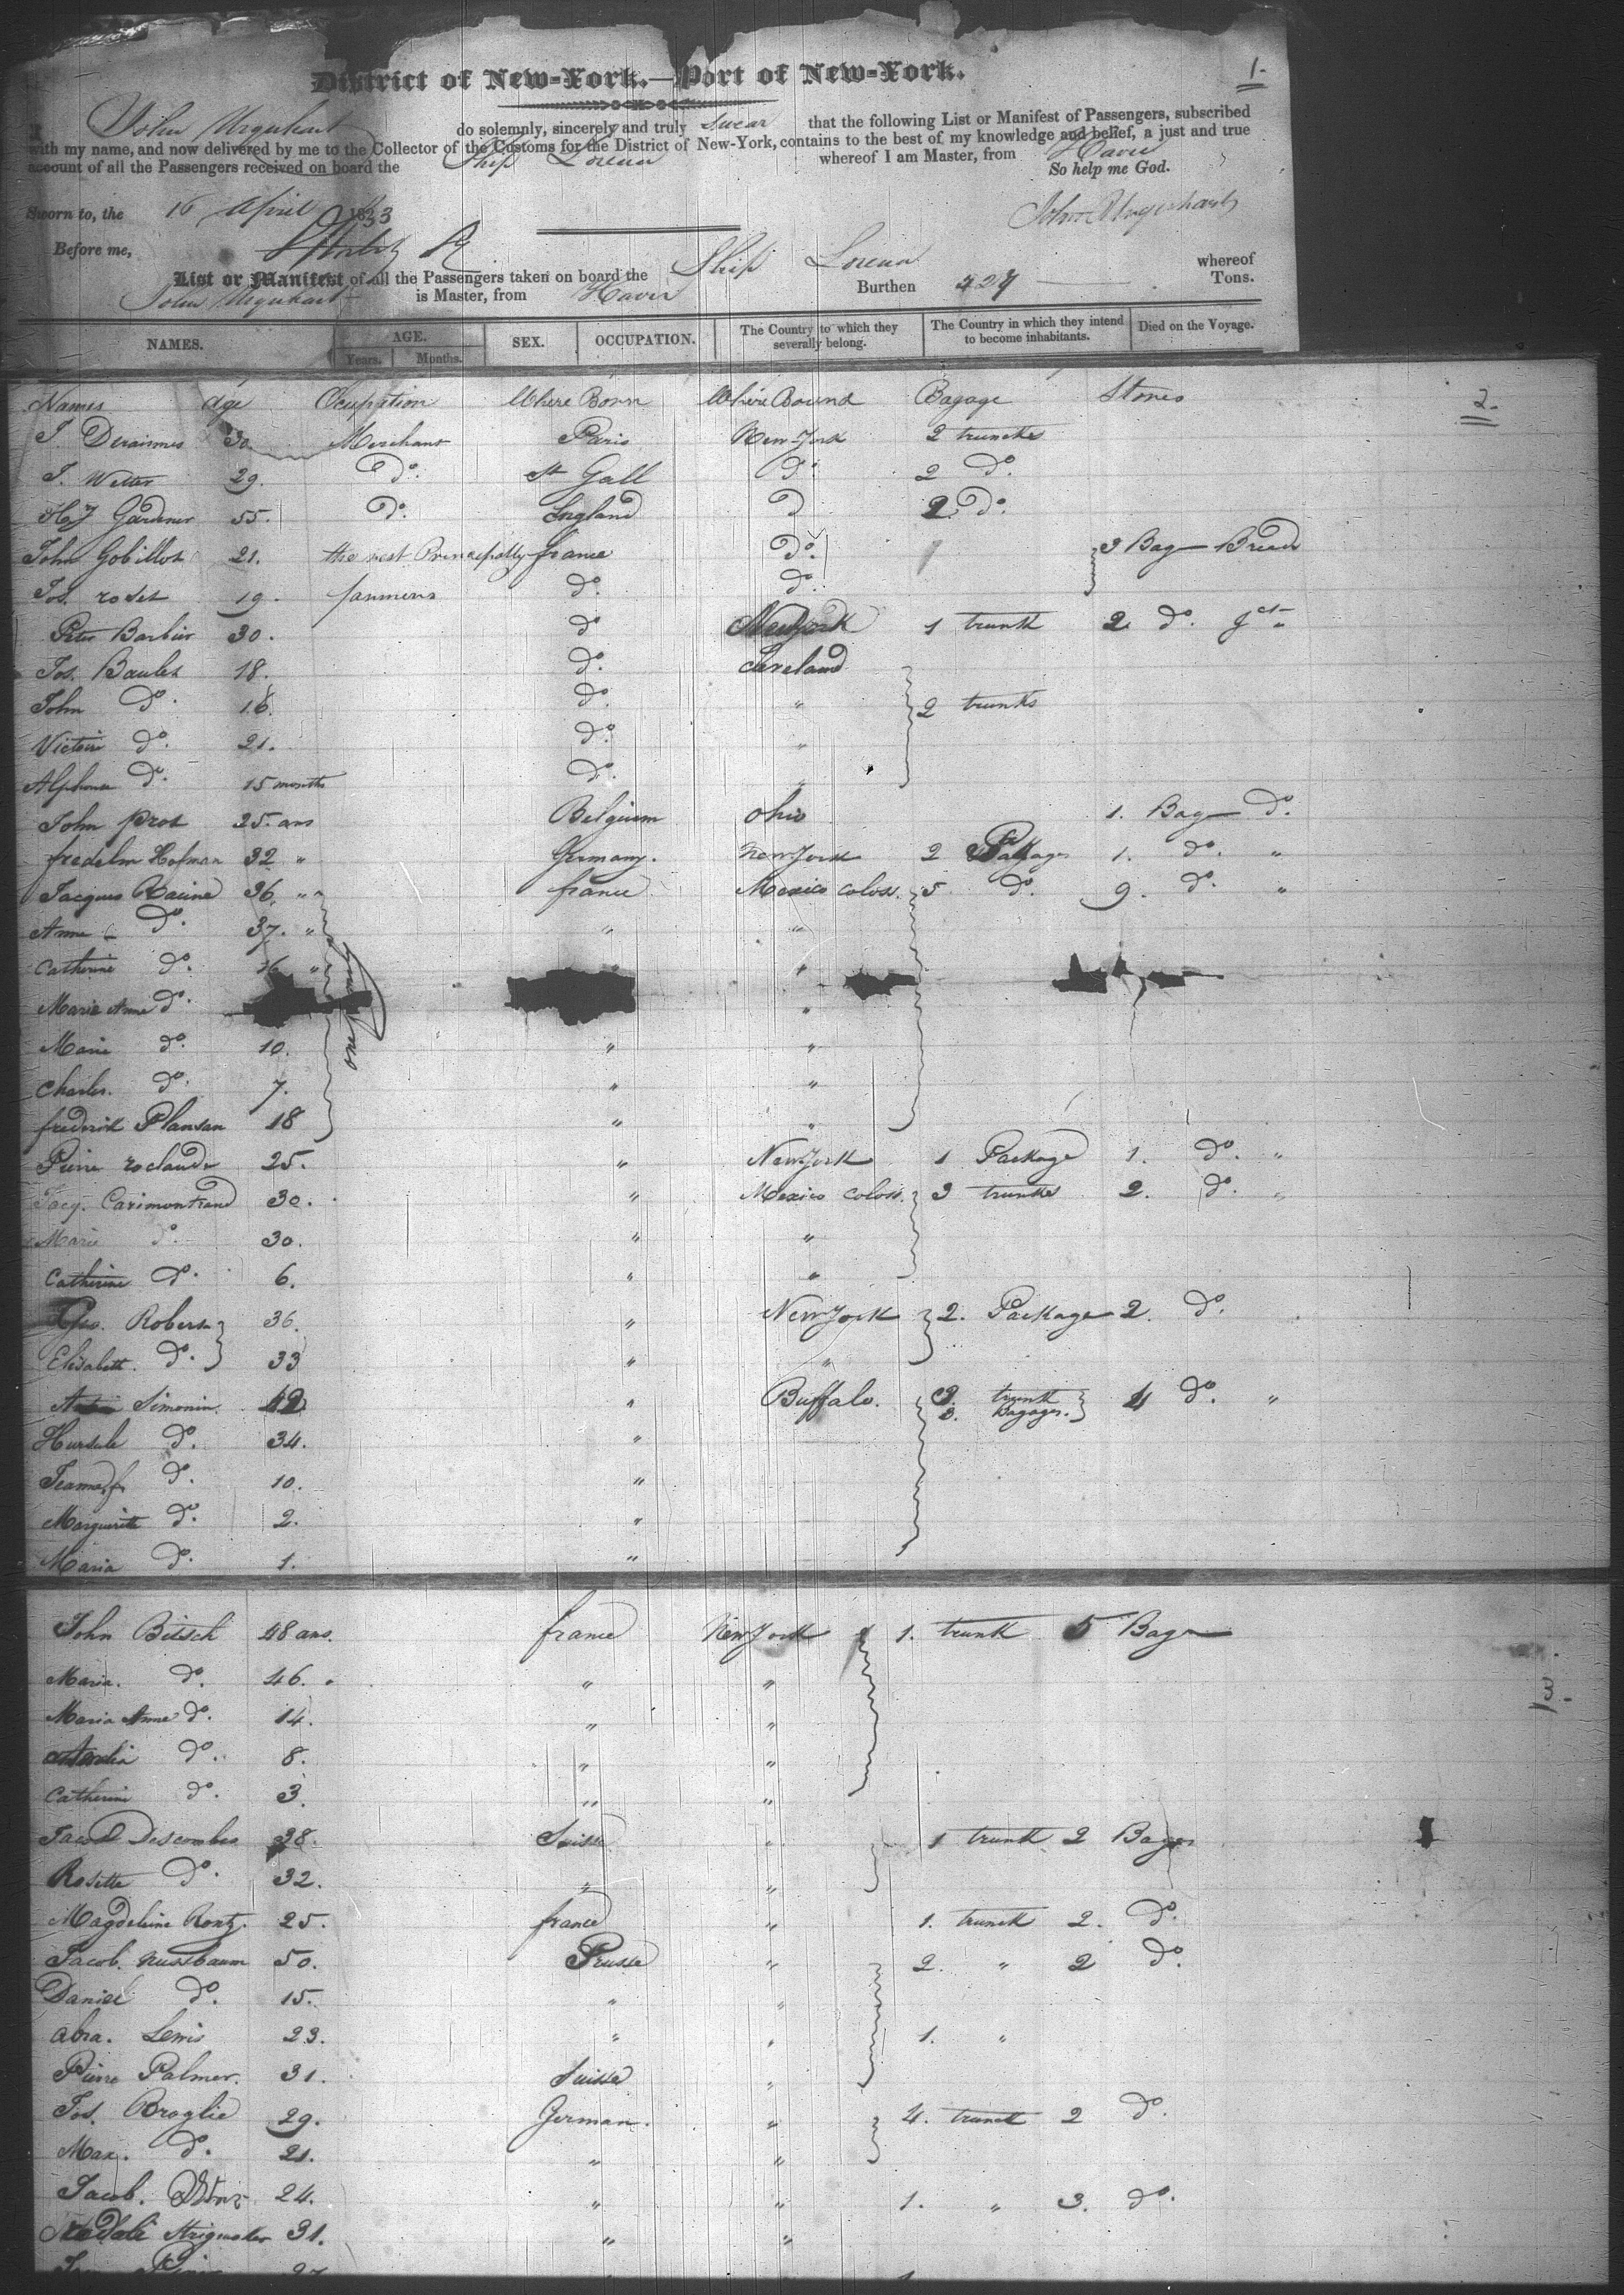 District of New-York.—Port of New-York.
1.
I John Urquhart do solemnly, sincerely and truly swear that the following List or Manifest of Passengers, subscribed
with my name, and now delivered by me to the Collector of the Customs for the District of New-York, contains to the best of my knowledge and belief, a just and true
account of all the Passengers received on board the Ship Lorena whereof I am Master, from Havre
So help me God.
Sworn to, the 16 April 1833 John Urquhart
Before me,
List or Manifest of all the Passengers taken on board the Ship Lorena whereof
John Urquhart is Master, from Havre Burthen 427 Tons.
NAMES. AGE. Years. Months. SEX. OCCUPATION. The Country to which they severally belong. The Country in which they intend to become inhabitants. Died on the Voyage.
Names Age Ocupation Where Born Where Bound Bagage Stores 2.
J. Deraismes 30 Merchant Paris New York 2 truncks
J. Wetter 29. Do. St Gall Do. 2 Do.
H J Gardner 55. Do. England D 2 Do.
John Gobillot 21. the rest Principally france Do. 3 Bag Bread
Jos. roset 19. farmers do. do.
Peter Barbier 30. do New york 1 trunk 2 do.
Jos. Baulet 18. do. Cleveland
John do. 16. do. " 2 trunks
Victoir do. 21. do. "
Alphonse do. 15 months do. "
John prot 25. ans Belgium ohio 1. Bag do.
fredelm Hofman 32 " Germany. New york 2 Pakages 1. do. "
Jacques Racine 36. " france Mexico coloss. 5 do. 9. do. "
Anne do. 37. " " "
Catherine do. 16 " "
Marie Anne do. "
Marie do. 10. " "
Charles. do. 7. " "
one family
frederik Plansan 18 " "
Pierre roclaude 25. " New York 1 Package 1. do. "
Jacq. Carimontrand 30. " Mexico coloss. 3 trunks 2. do. "
Marie do. 30. " "
Catherine do. 6. " "
Robert 36. " New York 2. Package 2. do.
Elisabeth. do. 33 " "
Simonin. 42 " Buffalo. 3. trunk 4 do. "
3. Bagages.
Hursule do. 34. "
Jeanne f do. 10. "
Marguerite do. 2. "
Maria do. 1. "
John Bitsch 48 ans. france New York 1. trunk 5 Bag
3.
Maria. do. 46. " "
Maria Anne do. 14. " "
do. 8. " "
Catherine do. 3. " "
Jacob Descombes 38. Suisse " 1 trunk 2 Bages
Rosette do. 32. " "
Magdeleine Rontz. 25. france " 1. trunck 2. do.
Jacob. Nussbaum 50. Prusse " 2. " 2 do.
Daniel do. 15. " "
abra. Lewis 23. " " 1. "
Pierre Palmer. 31. Suisse "
Jos. Broglie 29. German. " 4. trunck 2 do.
Max. do. 21. " "
Jacob. 24. " " 1. " 3. do.
31. " "